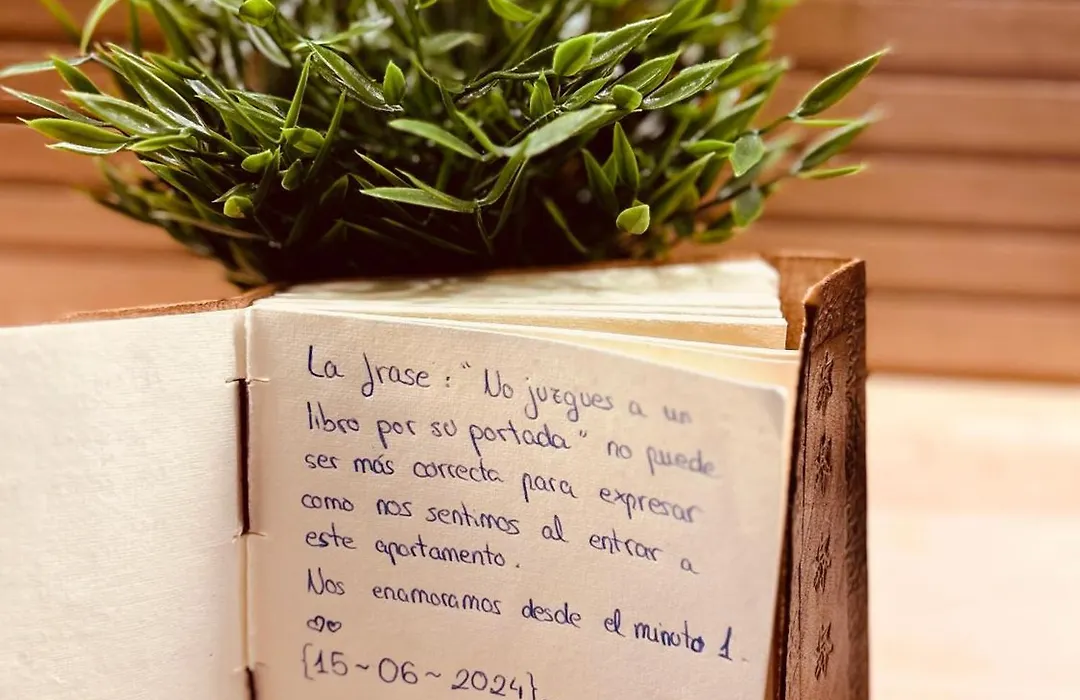 La frase: "No juzgues a un
libro por su portada" no puede
ser más correcta para expresar
como nos sentimos al entrar a
este apartamento.
Nos enamoramos desde el minuto 1.
♡♡
{15~06~2024}